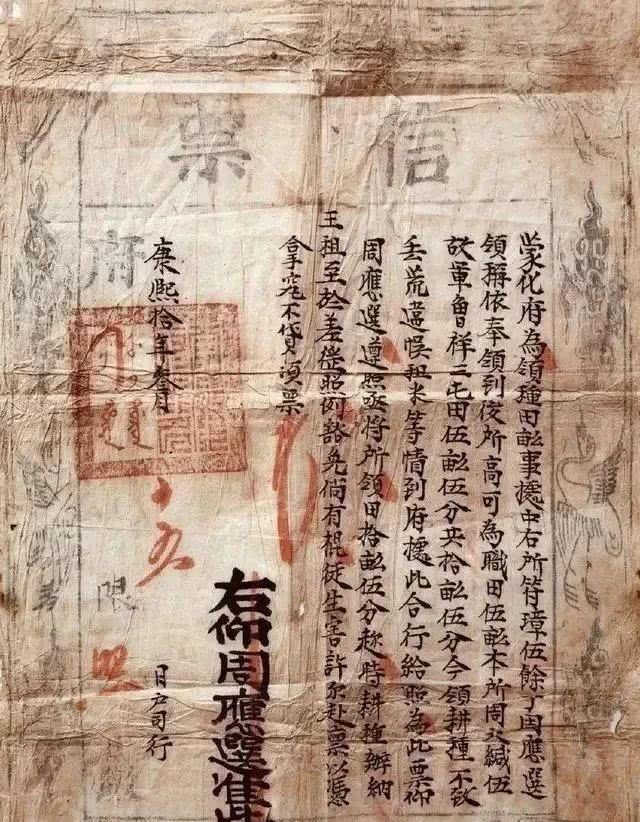 信票
蒙化府為領種田畆事據中右所符璋伍餘丁周應選
領稱依奉領到後所高可為職田伍畆本所周文緘伍
故軍魯祥三屯田伍畆伍分共拾畆伍分今領耕種不致
丢荒違悮租米等情到府據此合行給照為此票仰
周應選遵照亟將所領田拾畆伍分称時耕種辦納
王租至於差徭照例豁免倘有棍徒生害許爾赴票以憑
拿究不貸湏票
右仰周應選准此
康熙拾年叁月十五日戶司行
府限照